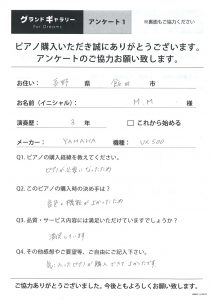 グランドギャラリー
For Dreams
アンケート1
※裏面もご協力ください
ピアノ購入いただき誠にありがとうございます。
アンケートのご協力お願い致します。
お住い： 長野 県 飯田 市
お名前(イニシャル)： M.M 様
演奏歴： 3 年 □これから始める
メーカー： YAMAHA 機種： UX500
Q1. ピアノ購入経緯を教えてください。
ピアノが必要になったため
Q2. このピアノの購入時の決め手は？
音色と機能がよかったため
Q3. 品質・サービス内容には満足いただけていますでしょうか？
満足しています
Q4. その他感想やご要望等、ご自由にご記入下さい。
ピアノが購入できてよかったです
ご協力ありがとうございました。今後ともよろしくお願い致します。